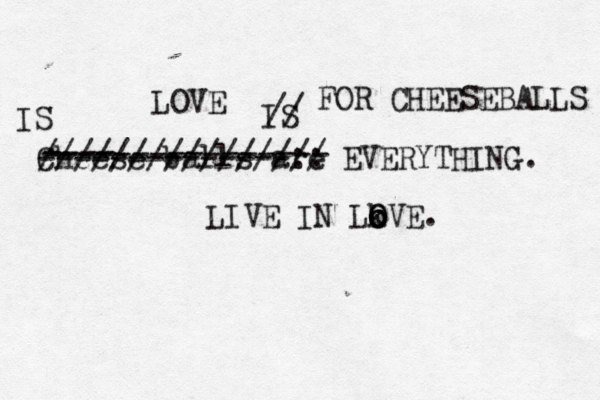 LOVE IS FOR CHEESEBALLS
IS
Cheese balls are EVERYTHING.
LIVE IN LOVE.